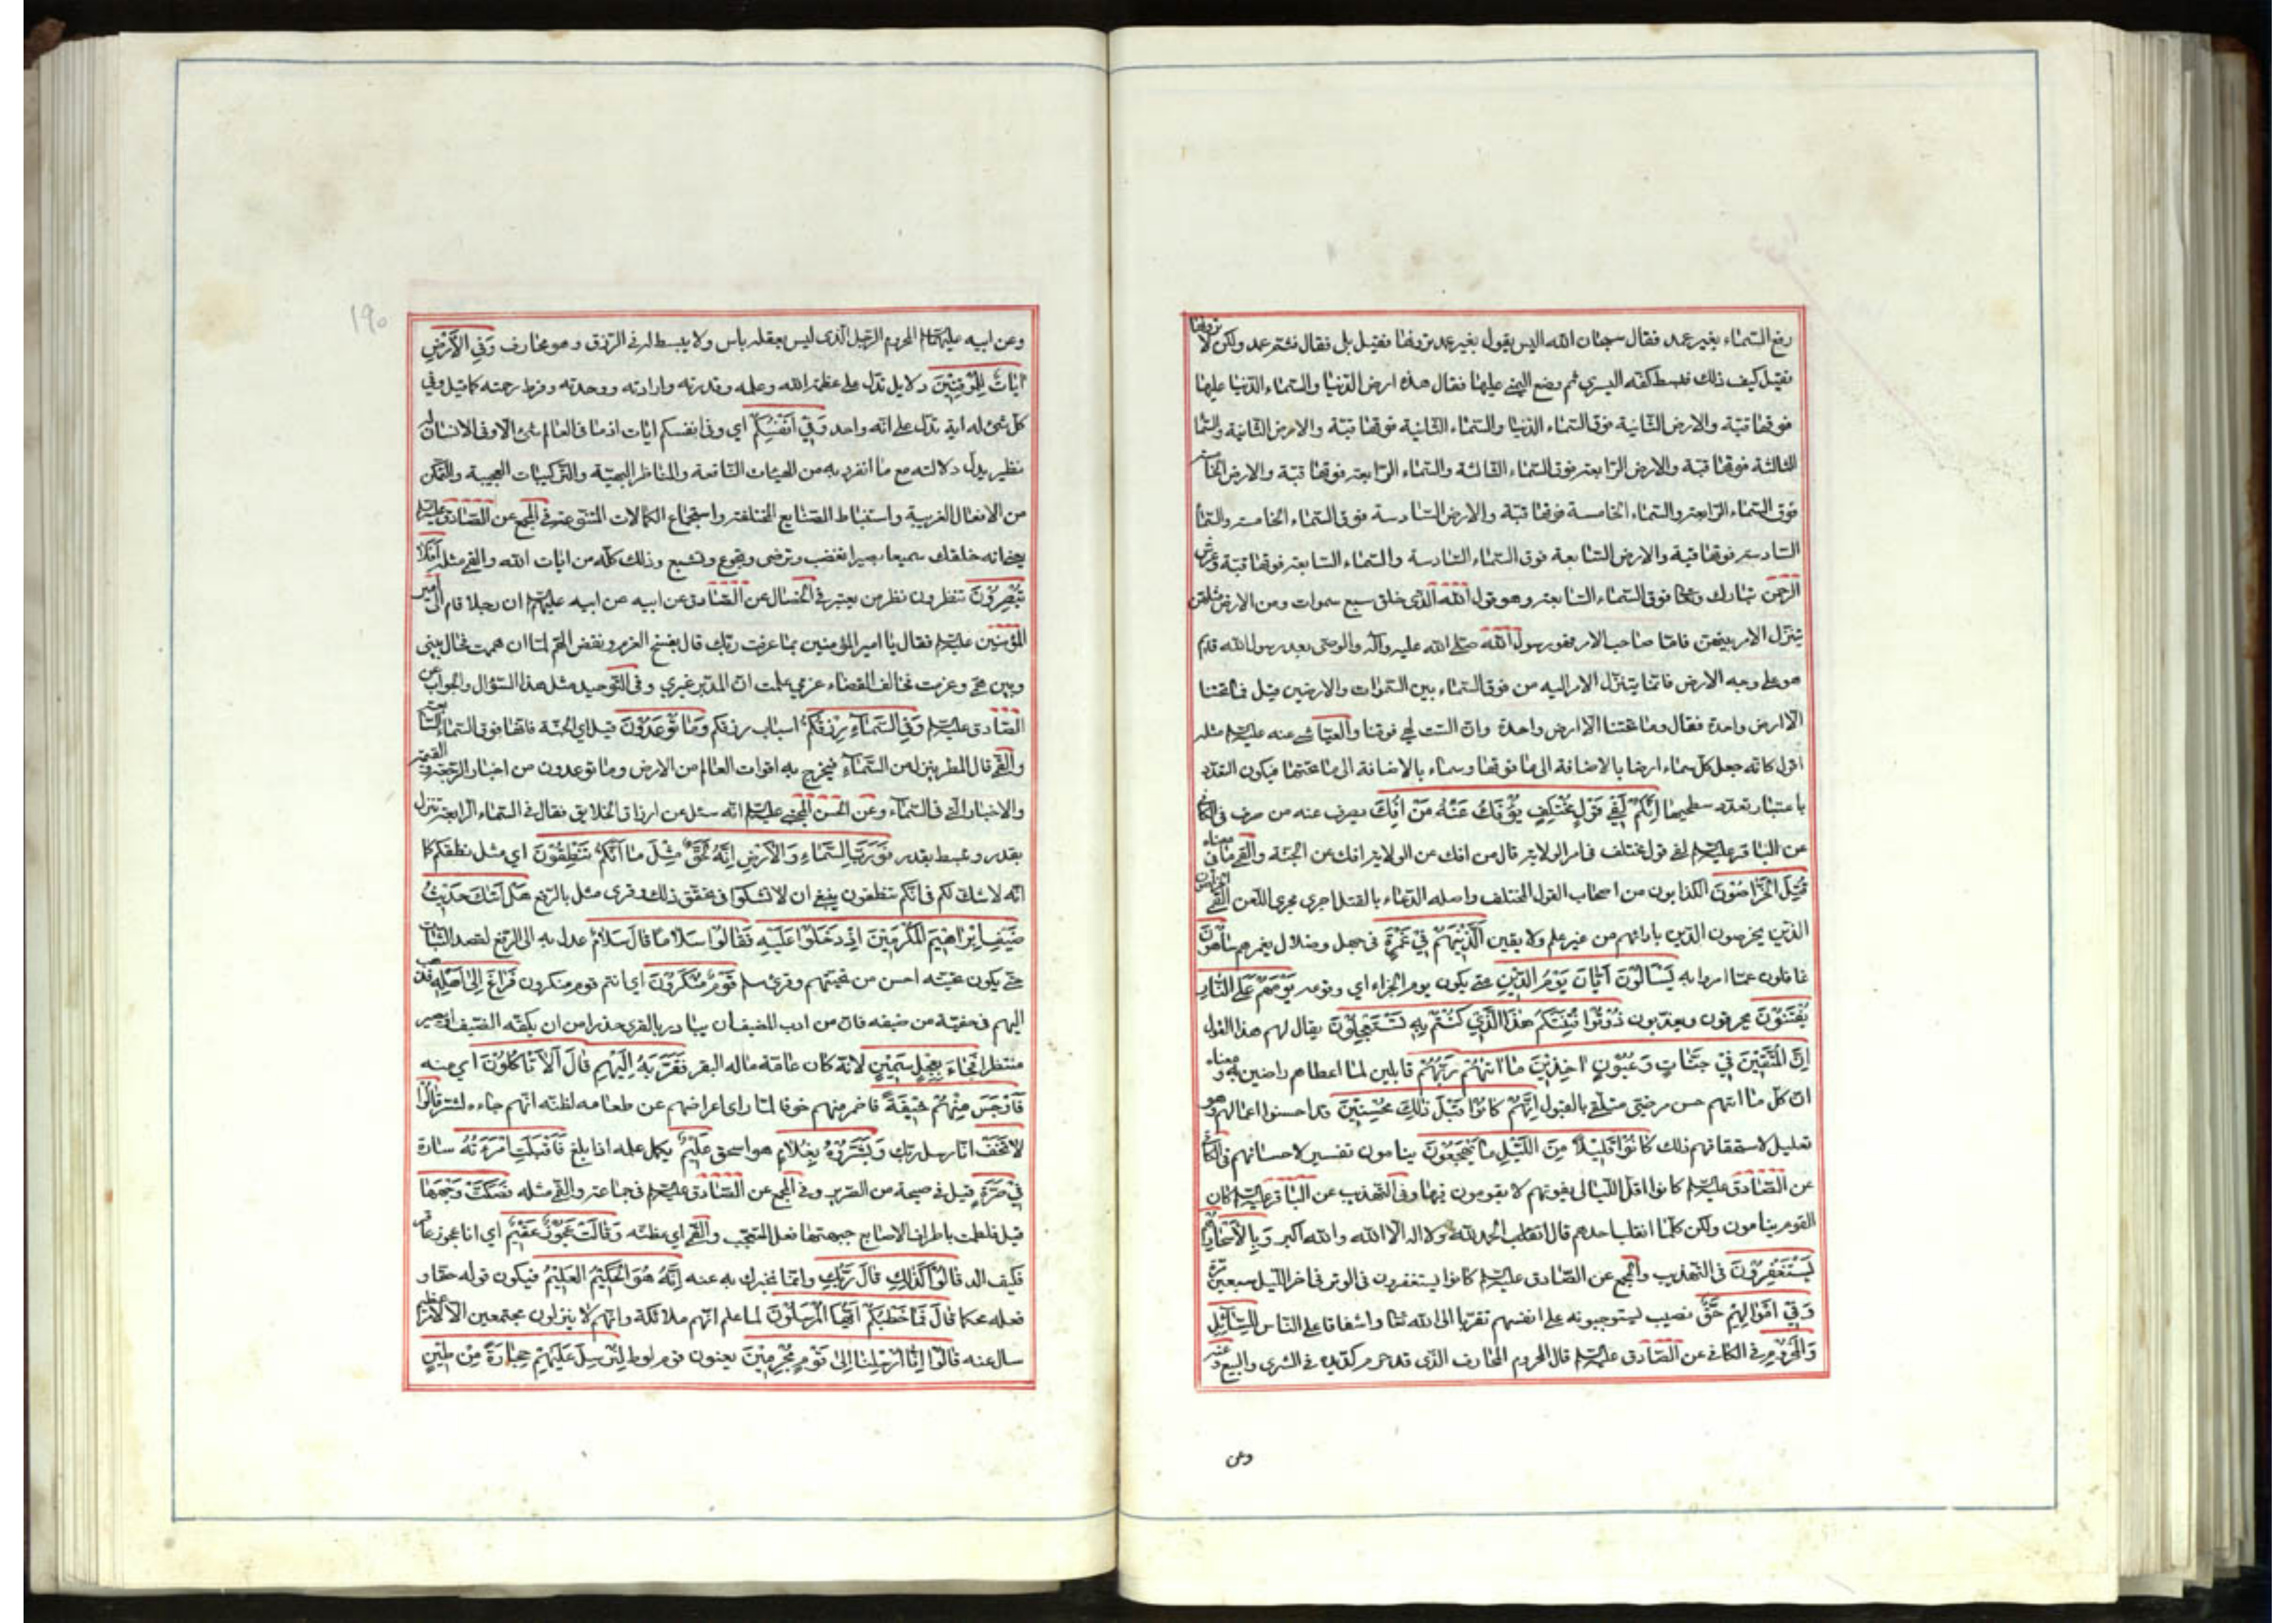 رفع السّماء بغير عمد فقال سبحان الله اليس يقول بغير عمد ترونها فقيل بلى فقال فثمّ عمد ولكن لا ترونها
فقيل كيف ذلك فبسط كفّه اليسرى ثم وضع اليمنى عليها فقال هذه ارض الدّنيا والسّماء الدّنيا عليها
فوقها قبّة والارض الثّانية فوق السّماء الدّنيا والسّماء الثّانية فوقها قبّة والارض الثالثة فوق السّماء الثانية والسّماء
الثالثة فوقها قبّة والارض الرّابعة فوق السّماء الثّالثة والسّماء الرّابعة فوقها قبّة والارض الخامسة
فوق السّماء الرّابعة والسّماء الخامسة فوقها قبّة والارض السّادسة فوق السّماء الخامسة والسّماء
السّادسة فوقها قبة والارض السّابعة فوق السّماء السّادسة والسّماء السّابعة فوقها قبّة وعرش
الرّحمن تبارك وتعالى فوق السّماء السّابعة وهو قول الله الّذى خلق سبع سموات ومن الارض مثلهن
يتنزّل الامر بينهن فامّا صاحب الامر فهو رسول الله صلّى الله عليه وآله والوصى بعد رسول الله قائم
هو على وجه الارض فانّما يتنزّل الامر اليه من فوق السّماء بين السّموات والارضين قيل فما تحتنا
الّا ارض واحدة فقال وما تحتنا الا ارض واحدة وان الست لهى فوقنا والعيّاشى عنه عليه السلام مثله
اقول كانّه جعل كل سماء ارضا بالاضافة الى ما فوقها وسماء بالاضافة الى ما تحتها فيكون التعدّد
باعتبار تعدّد سطحيها اِنَّكُمْ لَفِي قَوْلٍ مُخْتَلِفٍ يُؤْفَكُ عَنْهُ مَنْ اُفِكَ يصرف عنه من صرف فى الكافى
عن الباقر عليه السلام لفى قول مختلف فى امر الولاية قال من افك عن الولاية افك عن الجنّة والقمّى ما فى معناه
قُتِلَ الْخَرَّاصُونَ الكذابون من اصحاب القول المختلف واصله الدّعاء بالقتل اجرى مجرى اللّعن القمّى الخرّاصون
الّذين يخرصون الدّين بارائهم من غير علم ولا يقين اَلَّذِينَ هُمْ فِي غَمْرَةٍ فى جهل وضلال يغمرهم سَاهُونَ
غافلون عمّا امروا به يَسْأَلُونَ اَيَّانَ يَوْمُ الدِّينِ متى يكون يوم الجزاء اى وقوعه يَوْمَ هُمْ عَلَى النَّارِ
يُفْتَنُونَ يحرقون ويعذّبون ذُوقُوا فِتْنَتَكُمْ هٰذَا الَّذِي كُنْتُمْ بِهِ تَسْتَعْجِلُونَ يقال لهم هذا القول
اِنَّ الْمُتَّقِينَ فِي جَنَّاتٍ وَعُيُونٍ اٰخِذِينَ مَا اٰتٰهُمْ رَبُّهُمْ قابلين لما اعطاهم راضين به ومعناه
ان كل ما اتهم حسن مرضى متلقى بالقبول اِنَّهُمْ كَانُوا قَبْلَ ذٰلِكَ مُحْسِنِينَ قد احسنوا اعمالهم وهو
تعليل لاستحقاقهم ذلك كَانُوا قَلِيلًا مِنَ اللَّيْلِ مَا يَهْجَعُونَ ينامون تفسير لاحسانهم فى الكافى
عن الصّادق عليه السلام كانوا اقل اللّيالى يفوتهم لا يقومون فيها وفى التهذيب عن الباقر عليه السلام كان
القوم ينامون ولكن كلّما انقلب احدهم قال انقلب الحمد لله ولا اله الّا الله والله اكبر وَبِالْاَسْحَارِ هُمْ
يَسْتَغْفِرُونَ فى التهذيب والمجمع عن الصّادق عليه السلام كانوا يستغفرون فى الوتر فى اخر اللّيل سبعين مرّة
وَفِي اَمْوَالِهِمْ حَقٌّ نصيب يستوجبونه على انفسهم تقرّبا الى الله تعالى واشفاقا على النّاس لِلسَّائِلِ
وَالْمَحْرُومِ فى الكافى عن الصّادق عليه السلام قال المحروم المحارف الّذى قد حرم كدّ يده فى الشرى والبيع وعنه
وعن
١٩٠
وعن ابيه عليهما السلام المحروم الرّجل الّذى ليس بعقله باس ولا يبسط له فى الرّزق وهو محارف وَفِي الْاَرْضِ
اٰيَاتٌ لِلْمُوقِنِينَ دلايل تدلّ على عظمة الله وعلمه وقدرته وارادته ووحدته وفرط رحمته كما قيل وفى
كلّ شىء له اية تدل على انّه واحد وَفِي اَنْفُسِكُمْ اى وفى انفسكم ايات اذ ما فى العالم شىء الّا وفى الانسان له
نظير يدل دلالته مع ما انفرد به من الهيئات النّافعة والمناظر البهيّة والتّركيبات العجيبة والتمكّن
من الافعال الغريبة واستنباط الصّنايع المختلفة واستجماع الكمالات المتنوّعة فى المجمع عن الصّادق عليه السلام
يعنى انه خلقك سميعا بصيرا تغضب وترضى وتجوع وتشبع وذلك كلّه من ايات الله والقمى مثله اَفَلَا
تُبْصِرُونَ تنظرون نظر من يعتبر فى الخصال عن الصّادق عن ابيه عن ابيه عليهم السلام ان رجلا قام الى امير
المؤمنين عليه السلام فقال يا امير المؤمنين بما عرفت ربّك قال بفسخ العزم ونقض الهمّ لمّا ان هممت فحال بينى
وبين همّى وعزمت فخالف القضاء عزمى علمت انّ المدبّر غيرى وفى التّوحيد مثل هذا السّؤال والجواب عن
الصّادق عليه السلام وَفِي السَّمَاءِ رِزْقُكُمْ اسباب رزقكم وَمَا تُوعَدُونَ قيل اى الجنّة فانّها فوق السّماء السّابعة
والقمّى قال المطر ينزل من السَّمَاءِ فيخرج به اقوات العالم من الارض وما توعدون من اخبار الرّجعة والقيمة
والاخبار الّتى فى السّماء وعن الحسن المجتبى عليه السلام انّه سئل عن ارزاق الخلايق فقال فى السّماء الرّابعة تنزل
بقدر وتبسط بقدر فَوَرَبِّ السَّمَاءِ وَالْاَرْضِ اِنَّهُ لَحَقٌّ مِثْلَ مَا اَنَّكُمْ تَنْطِقُونَ اى مثل نطقكم كما
انّه لا شك لكم فى انّكم تنطقون ينبغى ان لا تشكّوا فى تحقّق ذلك وقرئ مثل بالرّفع هَلْ اَتٰكَ حَدِيثُ
ضَيْفِ اِبْرَاهِيمَ الْمُكْرَمِينَ اِذْ دَخَلُوا عَلَيْهِ فَقَالُوا سَلَامًا قَالَ سَلَامٌ عدل به الى الرّفع لقصد الثّبات
حتّى يكون تحيّته احسن من تحيّتهم وقرئ سلم قَوْمٌ مُنْكَرُونَ اى انتم قوم منكرون فَرَاغَ اِلٰى اَهْلِهِ فذهب
اليهم فى خفية من ضيفه فانّ من ادب المضيف ان يبادر بالقرى حذرا من ان يكفّه الضّيف او يصير
منتظرا فَجَاءَ بِعِجْلٍ سَمِينٍ لانّه كان عامّة ماله البقر فَقَرَّبَهُ اِلَيْهِمْ قَالَ اَلَا تَاْكُلُونَ اى منه
فَاَوْجَسَ مِنْهُمْ خِيفَةً فاضمر منهم خوفا لمّا راى اعراضهم عن طعامه لظنّه انّهم جاءوه لشرّ قَالُوا
لَا تَخَفْ انّا رسل ربّك وَبَشَّرُوهُ بِغُلَامٍ هو اسحق عَلِيمٍ يكمل علمه اذا بلغ فَاَقْبَلَتِ امْرَاَتُهُ سارة
فِي صَرَّةٍ قيل فى صيحة من الصّرير وفى المجمع عن الصّادق عليه السلام فى جماعة والقمّى مثله فَصَكَّتْ وَجْهَهَا
قيل فلطمت باطراف الاصابع جبهتها فعل المتعجّب والقمّى اى غطّته وَقَالَتْ عَجُوزٌ عَقِيمٌ اى انا عجوز عاقر
فكيف الد قَالُوا كَذٰلِكِ قَالَ رَبُّكِ وانّما نخبرك به عنه اِنَّهُ هُوَ الْحَكِيمُ الْعَلِيمُ فيكون قوله حقّا و
فعله محكما قَالَ فَمَا خَطْبُكُمْ اَيُّهَا الْمُرْسَلُونَ لما علم انّهم ملائكة وانّهم لا ينزلون مجتمعين الّا لامر عظيم
سال عنه قَالُوا اِنَّا اُرْسِلْنَا اِلٰى قَوْمٍ مُجْرِمِينَ يعنون قوم لوط لِنُرْسِلَ عَلَيْهِمْ حِجَارَةً مِنْ طِينٍ